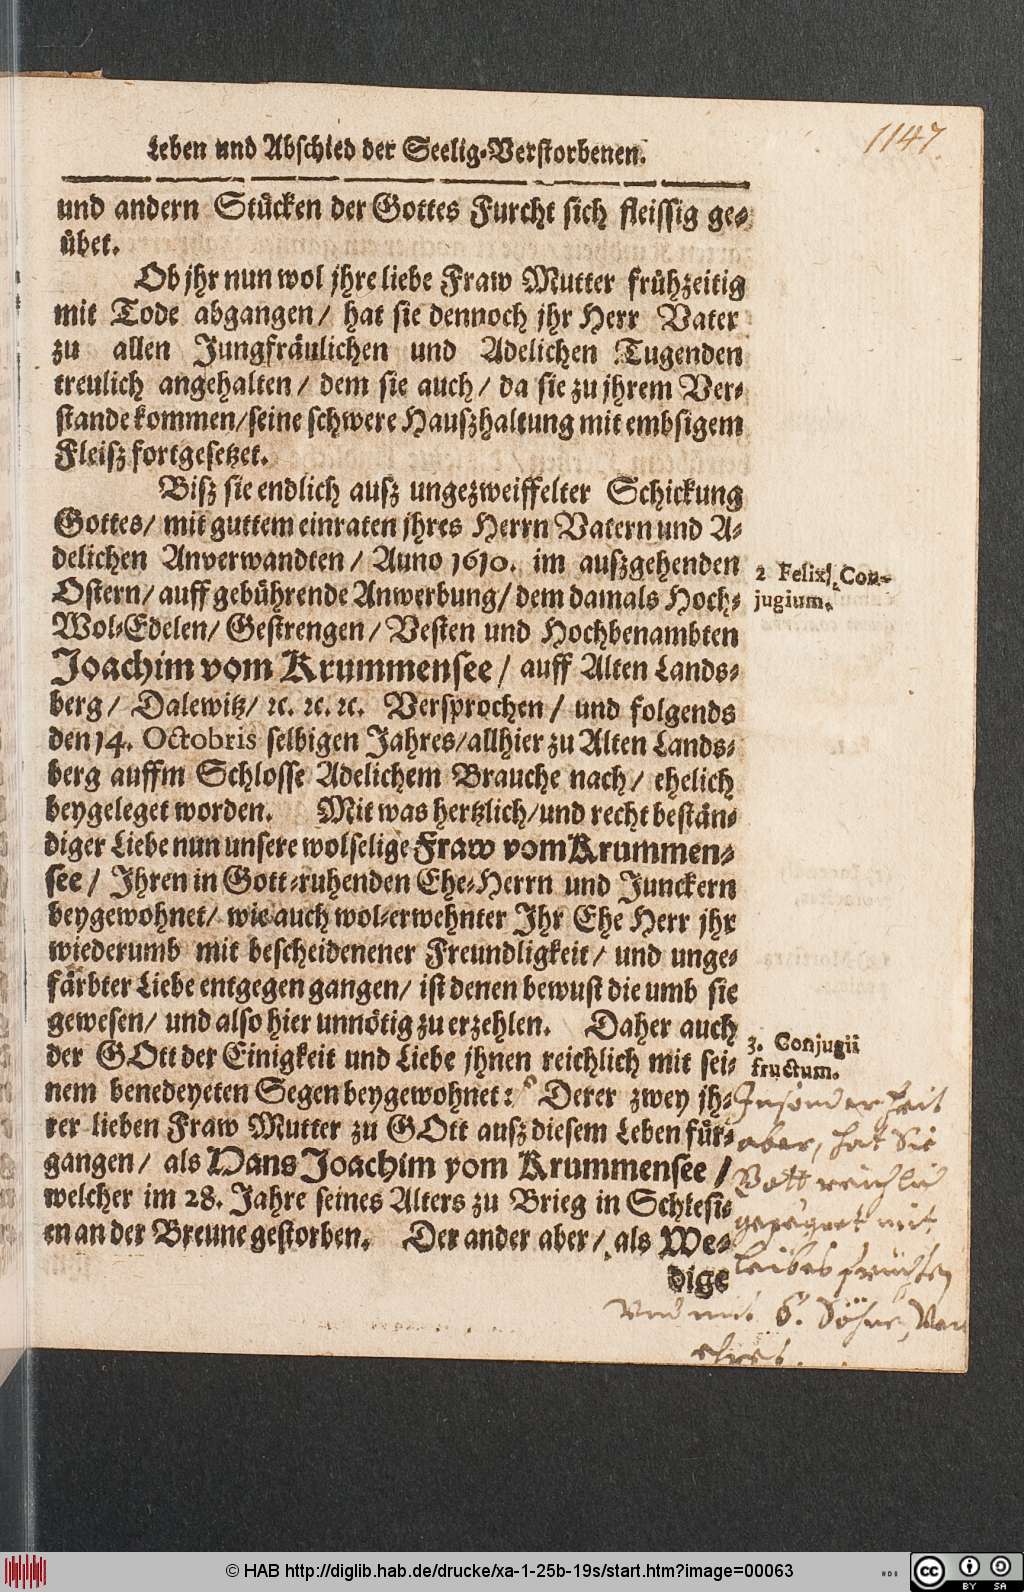 1147.
Leben und Abschied der Seelig-Verstorbenen.
und andern Stücken der Gottes Furcht sich fleissig ge-
übet.
Ob jhr nun wol jhre liebe Fraw Mutter frühzeitig
mit Tode abgangen / hat sie dennoch jhr Herr Vater
zu allen Jungfräulichen und Adelichen Tugenden
treulich angehalten / dem sie auch / da sie zu jhrem Ver-
stande kommen / seine schwere Hauszhaltung mit embsigem
Fleisz fortgesetzet.
Bisz sie endlich ausz ungezweiffelter Schickung
Gottes / mit guttem einraten jhres Herrn Vatern und A-
delichen Anverwandten / Anno 1610. im auszgehenden
Ostern / auff gebührende Anwerbung / dem damals Hoch-
Wol-Edelen / Gestrengen / Vesten und Hochbenambten
Joachim vom Krummensee / auff Alten Lands-
berg / Dalewitz / ꝛc. ꝛc. ꝛc. Versprochen / und folgends
den 14. Octobris selbigen Jahres / allhier zu Alten Lands-
berg auffm Schlosse Adelichem Brauche nach / ehelich
beygeleget worden. Mit was hertzlich / und recht bestän-
diger Liebe nun unsere wolselige Fraw vom Krummen-
see / Ihren in Gott-ruhenden Ehe-Herrn und Junckern
beygewohnet / wie auch wol-erwehnter Ihr Ehe Herr jhr
wiederumb mit bescheidenener Freundligkeit / und unge-
färbter Liebe entgegen gangen / ist denen bewust die umb sie
gewesen / und also hier unnötig zu erzehlen. Daher auch
der GOtt der Einigkeit und Liebe jhnen reichlich mit sei-
nem benedeyeten Segen beygewohnet: Derer zwey jh-
rer lieben Fraw Mutter zu GOtt ausz diesem Leben für-
gangen / als Hans Joachim vom Krummensee /
welcher im 28. Jahre seines Alters zu Brieg in Schlesi-
en an der Breune gestorben. Der ander aber / als We-
dige
2 Felix Con-
jugium.
3. Conjugii
fructum.
Insonderheit
aber, hat Sie
Gott reichlich
gesegnet mit
leibes früchten
Vnd mit 6. Söhne, Ver
ehret.
© HAB http://diglib.hab.de/drucke/xa-1-25b-19s/start.htm?image=00063
cc BY SA